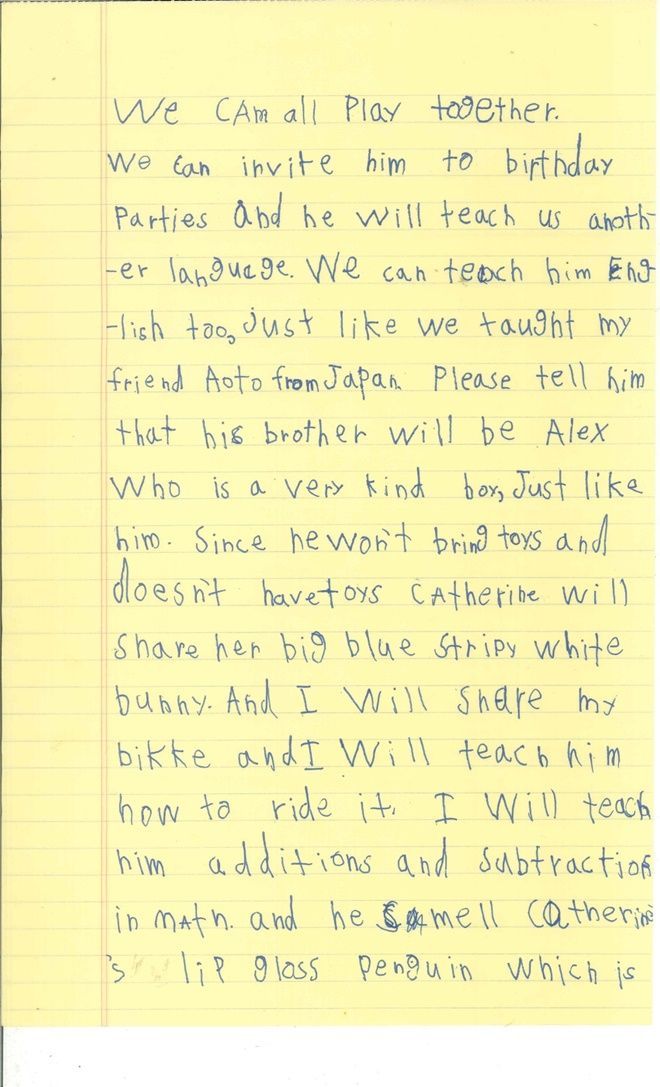 We CAn all Play together.
We can invite him to birthday
Parties and he will teach us anoth-
-er language. We can teach him Eng
-lish too, just like we taught my
friend Aoto from Japan. Please tell him
that his brother will be Alex
Who is a very kind boy, Just like
him. Since he won't bring toys and
doesn't have toys CAtherine will
Share her big blue Stripy white
bunny. And I Will Share my
bikke and I Will teach him
how to ride it. I Will teach
him additions and Subtraction
in mAth. and he smell Catherine
's lip gloss Penguin which is